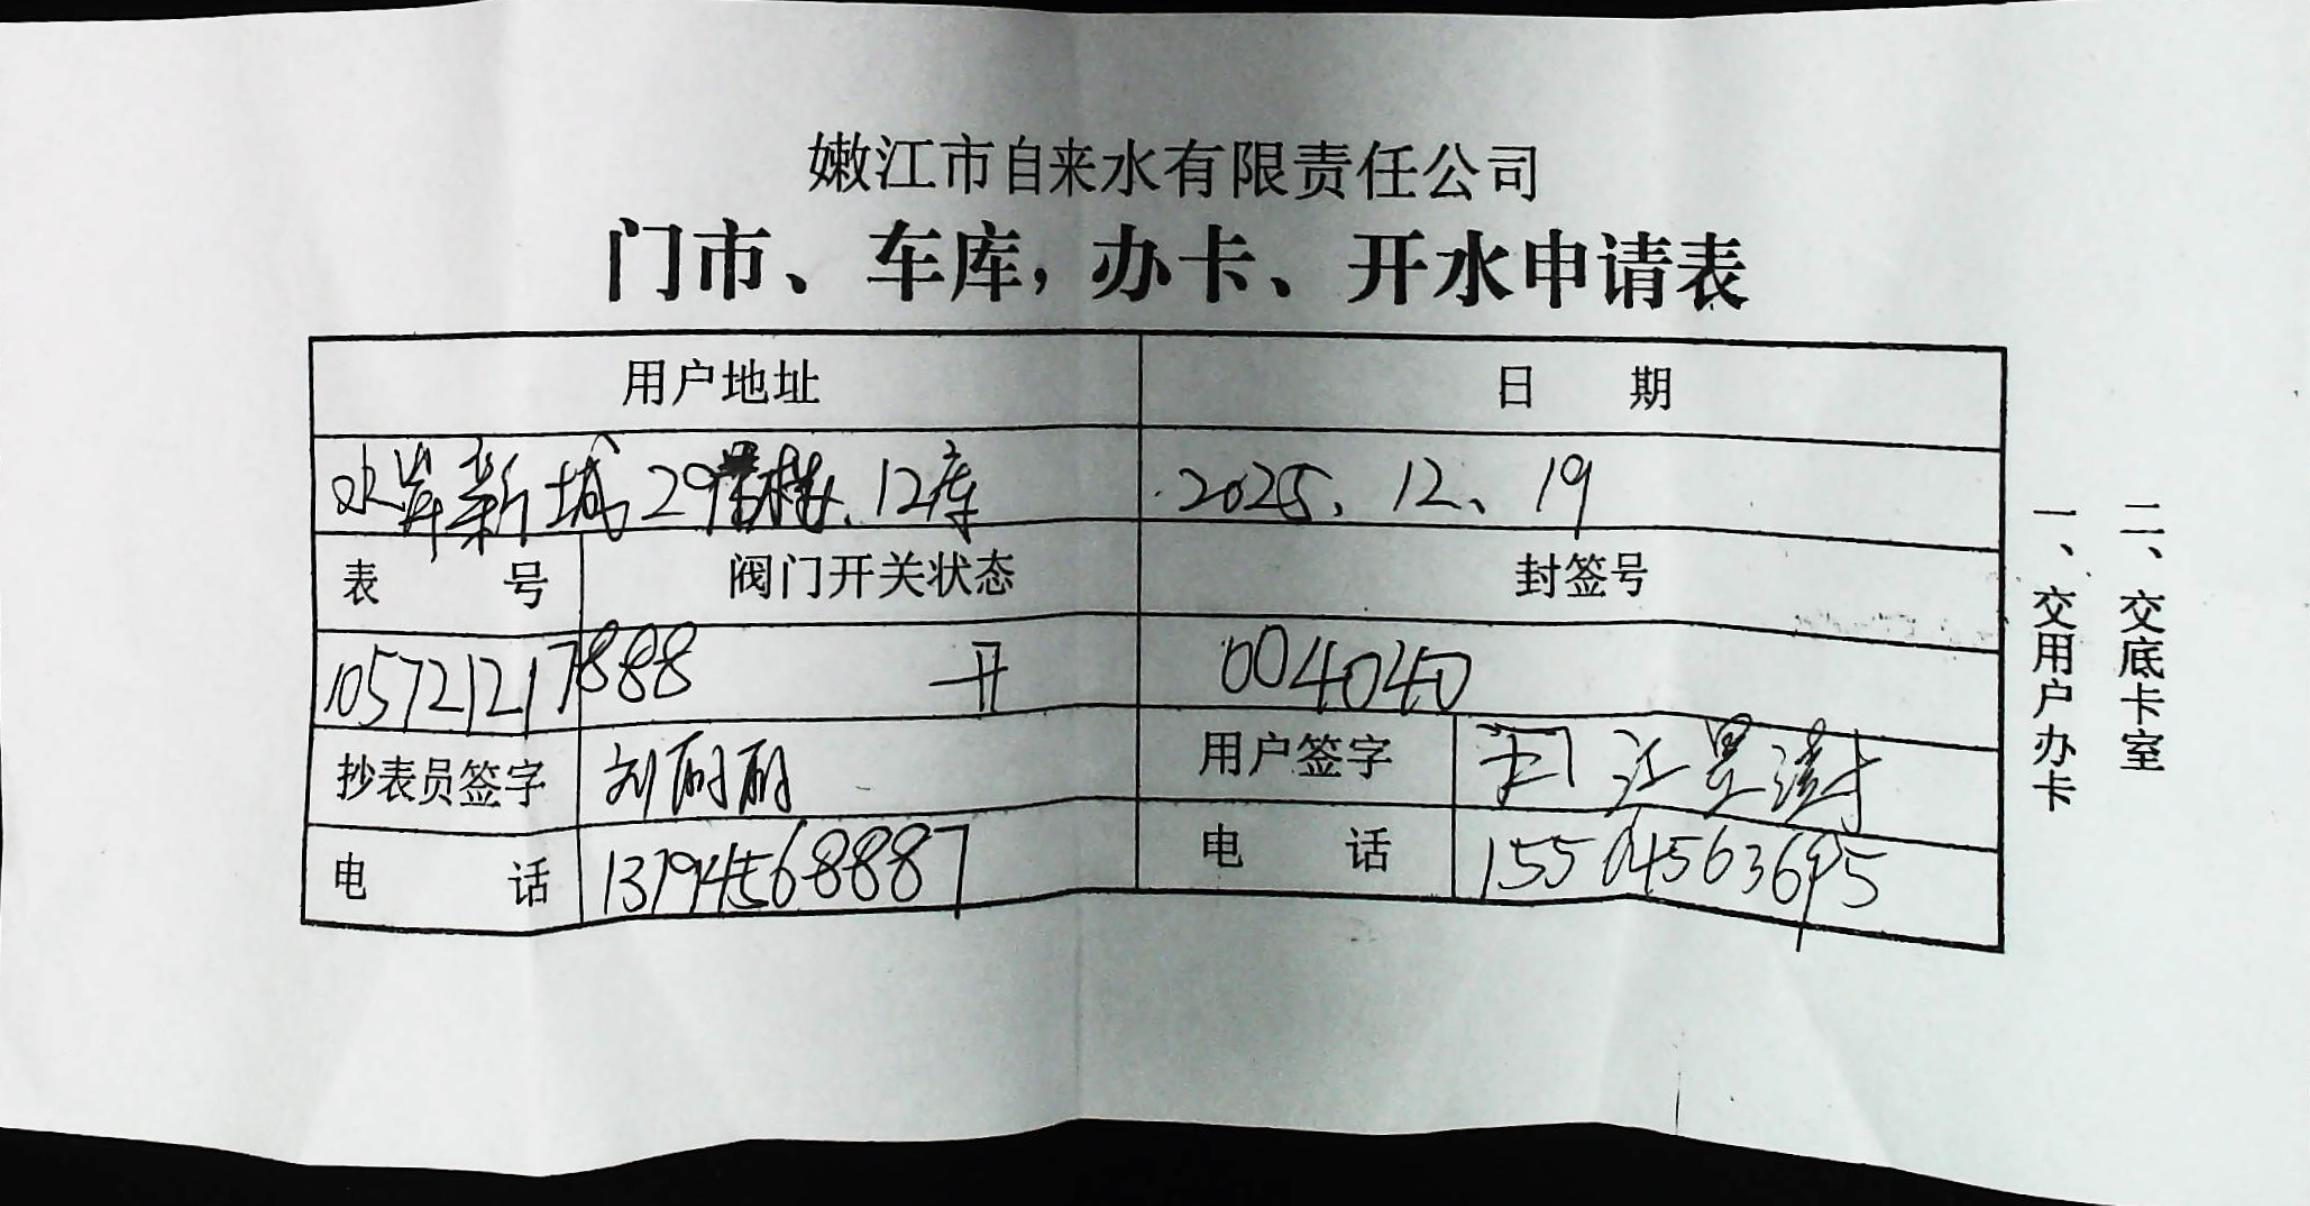 嫩江市自来水有限责任公司
门市、车库，办卡、开水申请表
用户地址 日 期
水岸新城29 楼、12库 2025、12、19
表 号 阀门开关状态 封签号
105721217888 开 004040
抄表员签字 刘丽丽 用户签字
电 话 13794568887 电 话 15504563695
一、交用户办卡
二、交底卡室